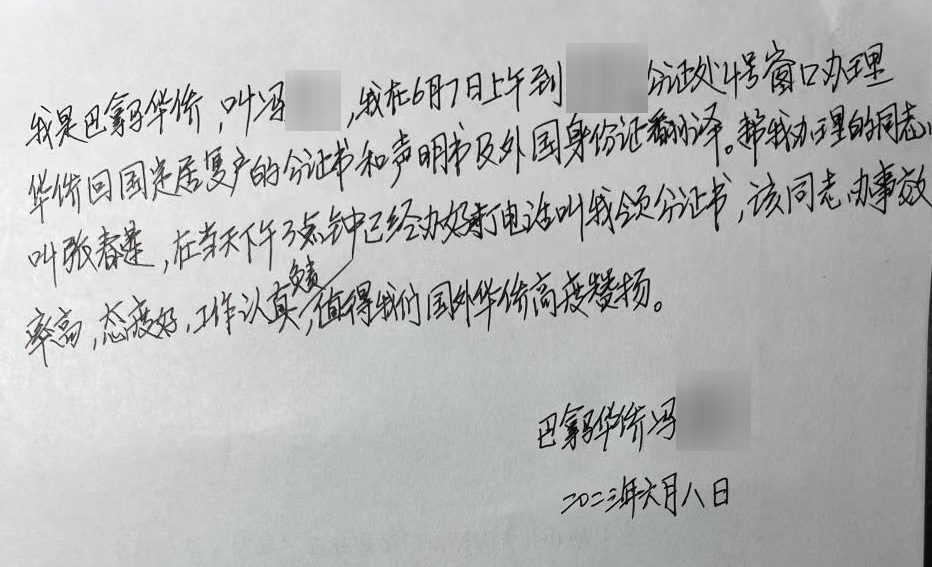 我是巴拿马华侨，叫冯，我在6月7日上午到公证处4号窗口办理
华侨回国定居复户的公证书和声明书及外国身份证翻译。帮我办理的同志，
叫张春莲，在当天下午3点钟已经办好打电话叫我领公证书，该同志办事效
率高，态度好，工作认真负责，值得我们国外华侨高度赞扬。
巴拿马华侨冯
二〇二三年六月八日